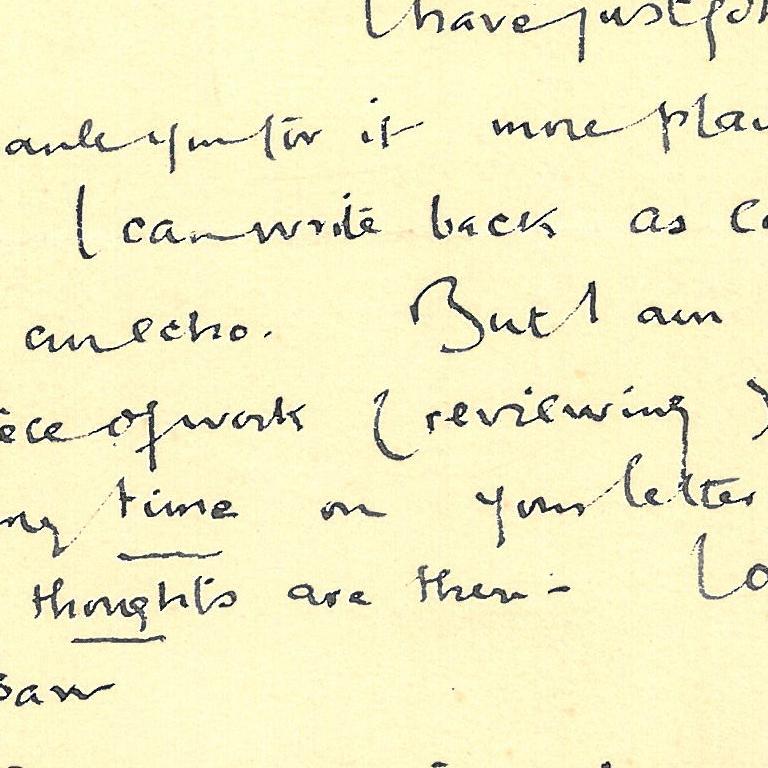 I have just
you for it more
I can write back as
an echo. But I am
of work (reviewing)
time on your letter
thoughts are there -
saw